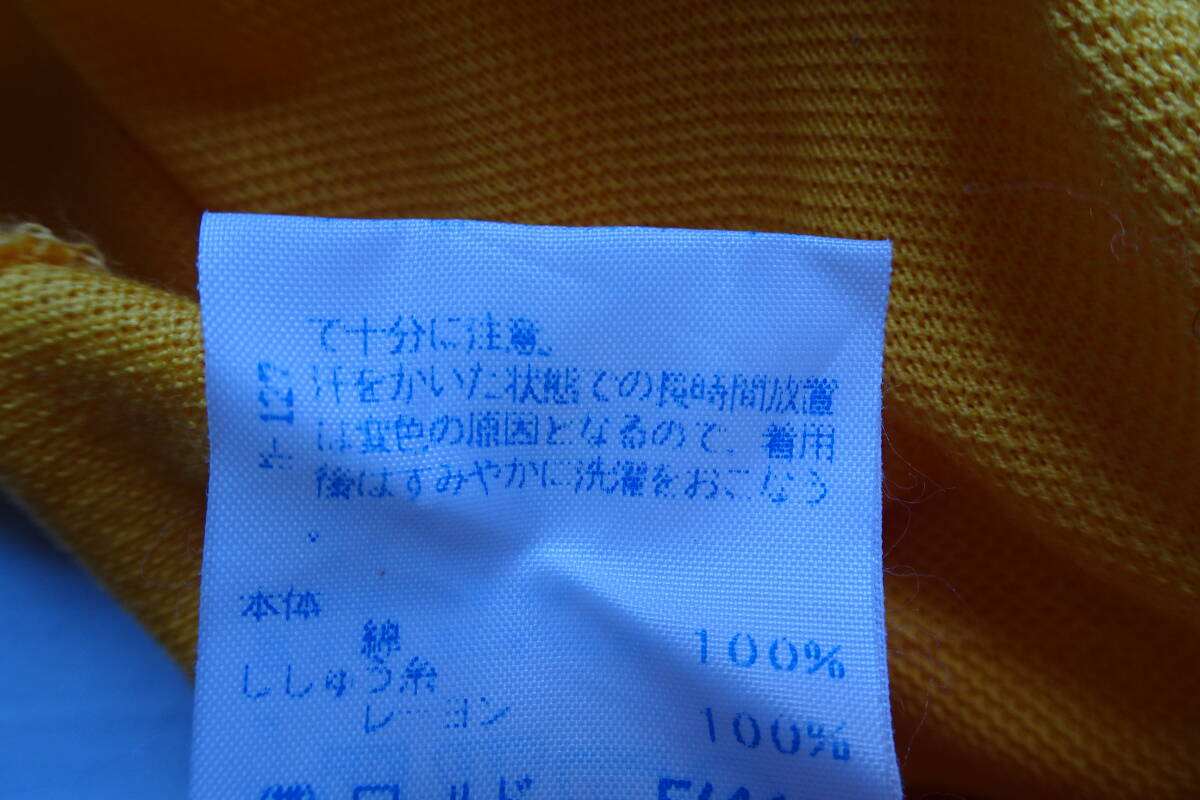 て十分に注意。
汗をかいた状態での長時間放置
は変色の原因となるので、着用
後はすみやかに洗濯をおこなう
。
本体
綿 100%
ししゅう糸
レーヨン 100%
(株)ワールド